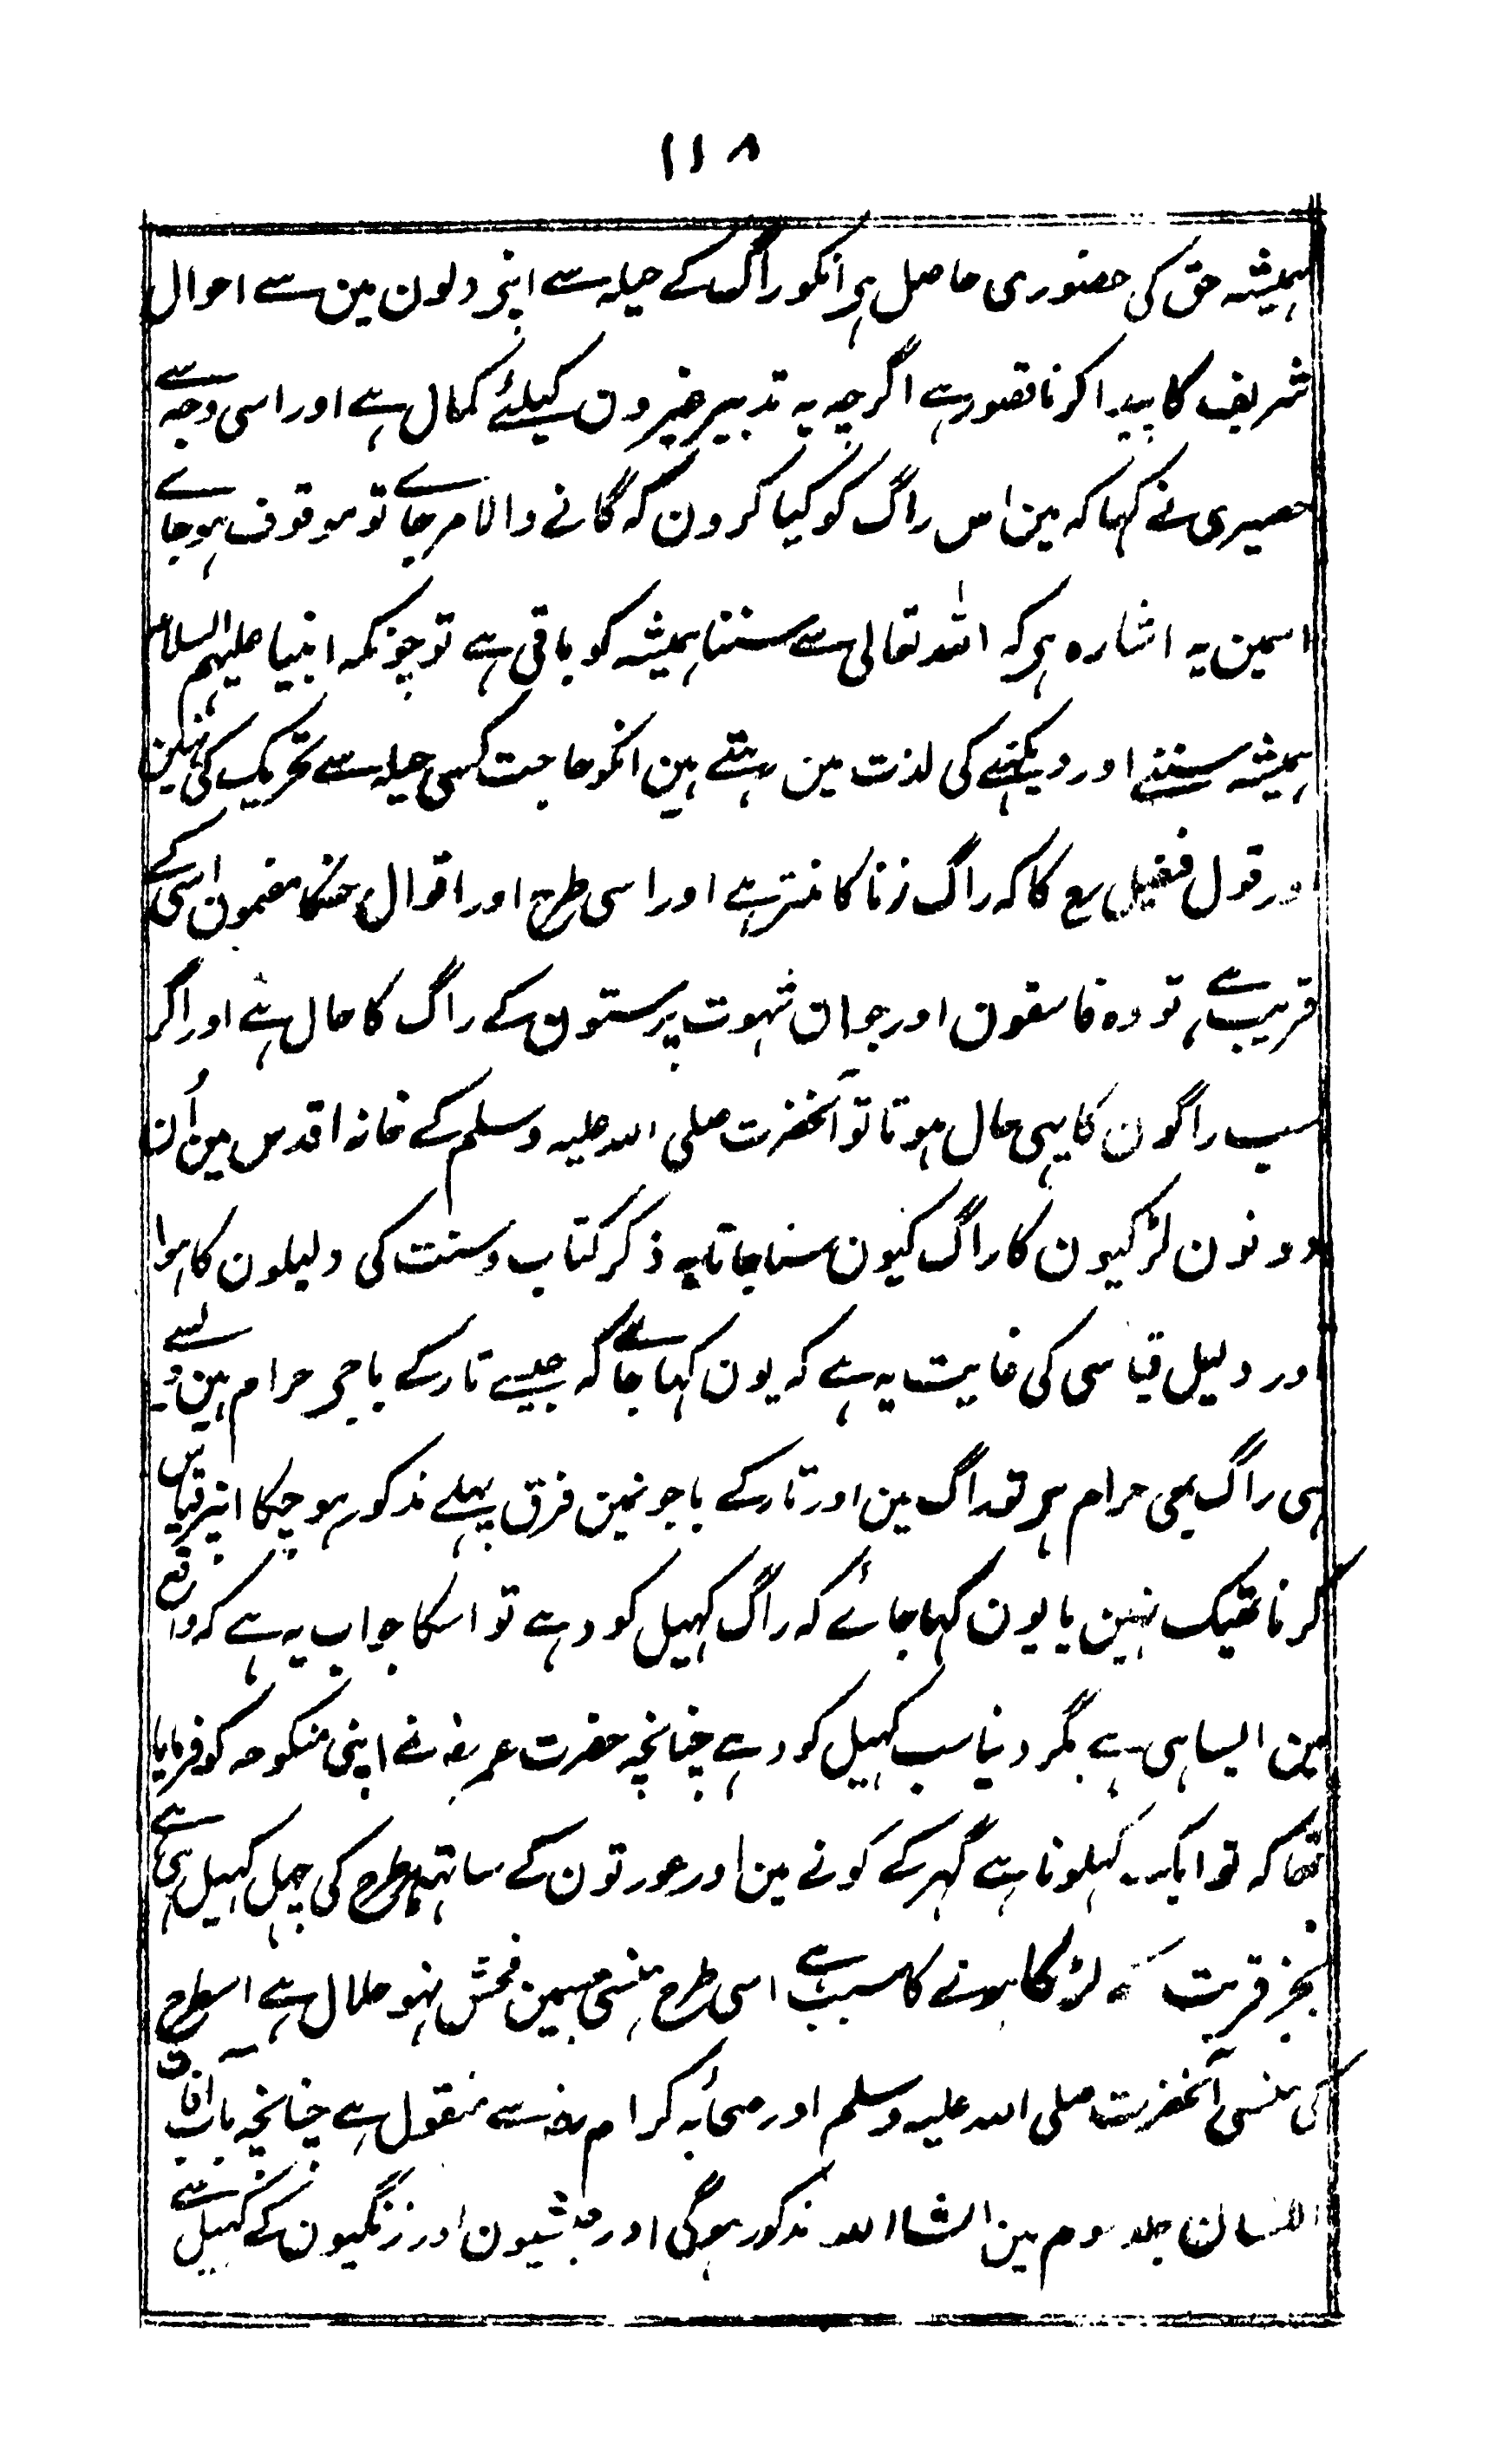 ۱۱۸
ہمیشہ حق کی حضوری حاصل ہر انکو راگ کے حیلہ سے اپنر دلون مین سے احوال
شریف کا پیدا کرنا قصور ہے اگرچہ یہ تدبیر غیرون کیلئے کمال ہے اور اسی وجہ سے
حصیری نے کہا کہ مین اس راگ کو کیا کرون کہ گانے والا مر جاے تو موقوف ہو جاے
اسمین یہ اشارہ ہر کہ اللہ تعالی سے سننا ہمیشہ کو باقی ہے تو چونکہ انبیا علیہم السلام
ہمیشہ سننے اور دیکہنے کی لذت مین رہتے ہین انکو حاجت کسی حیلہ سے تحریک کی نہین
اور قول فضیل رح کا کہ راگ زنا کا منتر ہے اور اسی طرح اور اقوال جنکا مضمون اسی کے
قریب ہے تو وہ فاسقون اور جوان شہوت پرستون کے راگ کا حال ہے اور اگر
سب راگون کا یہی حال ہوتا تو آنحضرت صلی اللہ علیہ وسلم کے خانہ اقدس مین اُن
دونون لڑکیون کا راگ کیون سنا جاتا یہ ذکر کتاب و سنت کی دلیلون کا ہوا
اور دلیل قیاسی کی غایت یہ ہے کہ یون کہا جاے کہ جیسے تار کے باجر حرام ہین ویسے
ہی راگ بھی حرام ہر تو راگ مین اور تار کے باجونمین فرق پہلے مذکور ہو چکا انپر قیاس
کرنا ٹھیک نہین یا یون کہا جائے کہ راگ کہیل کود ہے تو اسکا جواب یہ ہے کہ واقع
مین ایسا ہی ہے مگر دنیا سب کہیل کود ہے چنانچہ حضرت عمر رضہ نے اپنی منکوحہ کو فرمایا
تھا کہ تو ایک کہلونا ہے گہر کے کونے مین اور عورتون کے ساتہہ ہر طرح کی چہل کہیل ہی ہے
بجز قربت کہ لڑکا ہونے کا سبب ہے اسی طرح ہنسی جسمین فحش نہو حلال ہے اسطرح
کی ہنسی آنحضرت صلی اللہ علیہ وسلم اور صحابہ کرام رضہ سے منقول ہے چنانچہ باب آفات
اللسان جلد سوم مین انشا اللہ مذکور ہوگی اور حبشیون اور زنگیون کے کہیل سے